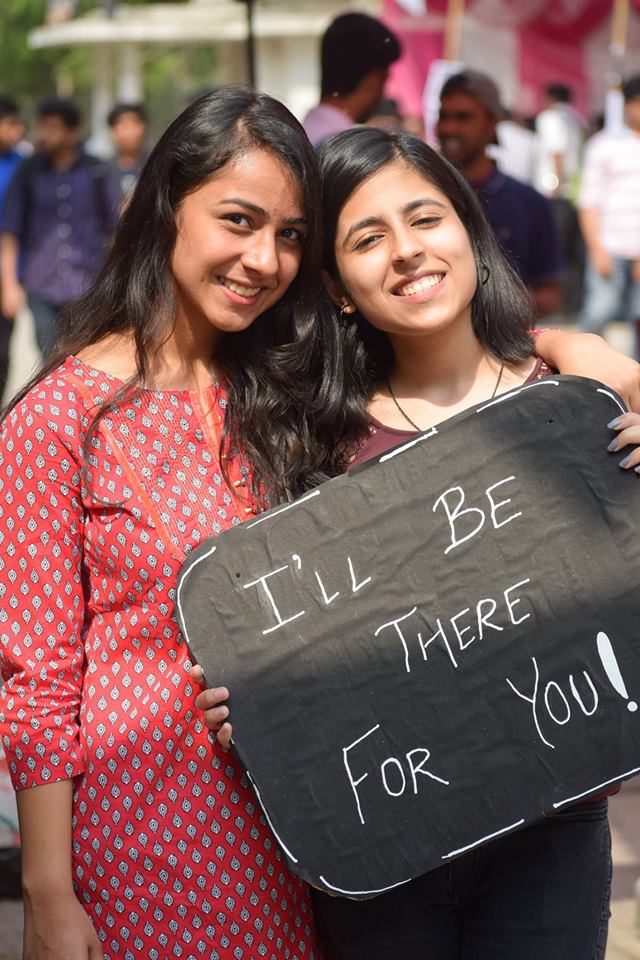 I'LL BE
THERE
FOR YOU!